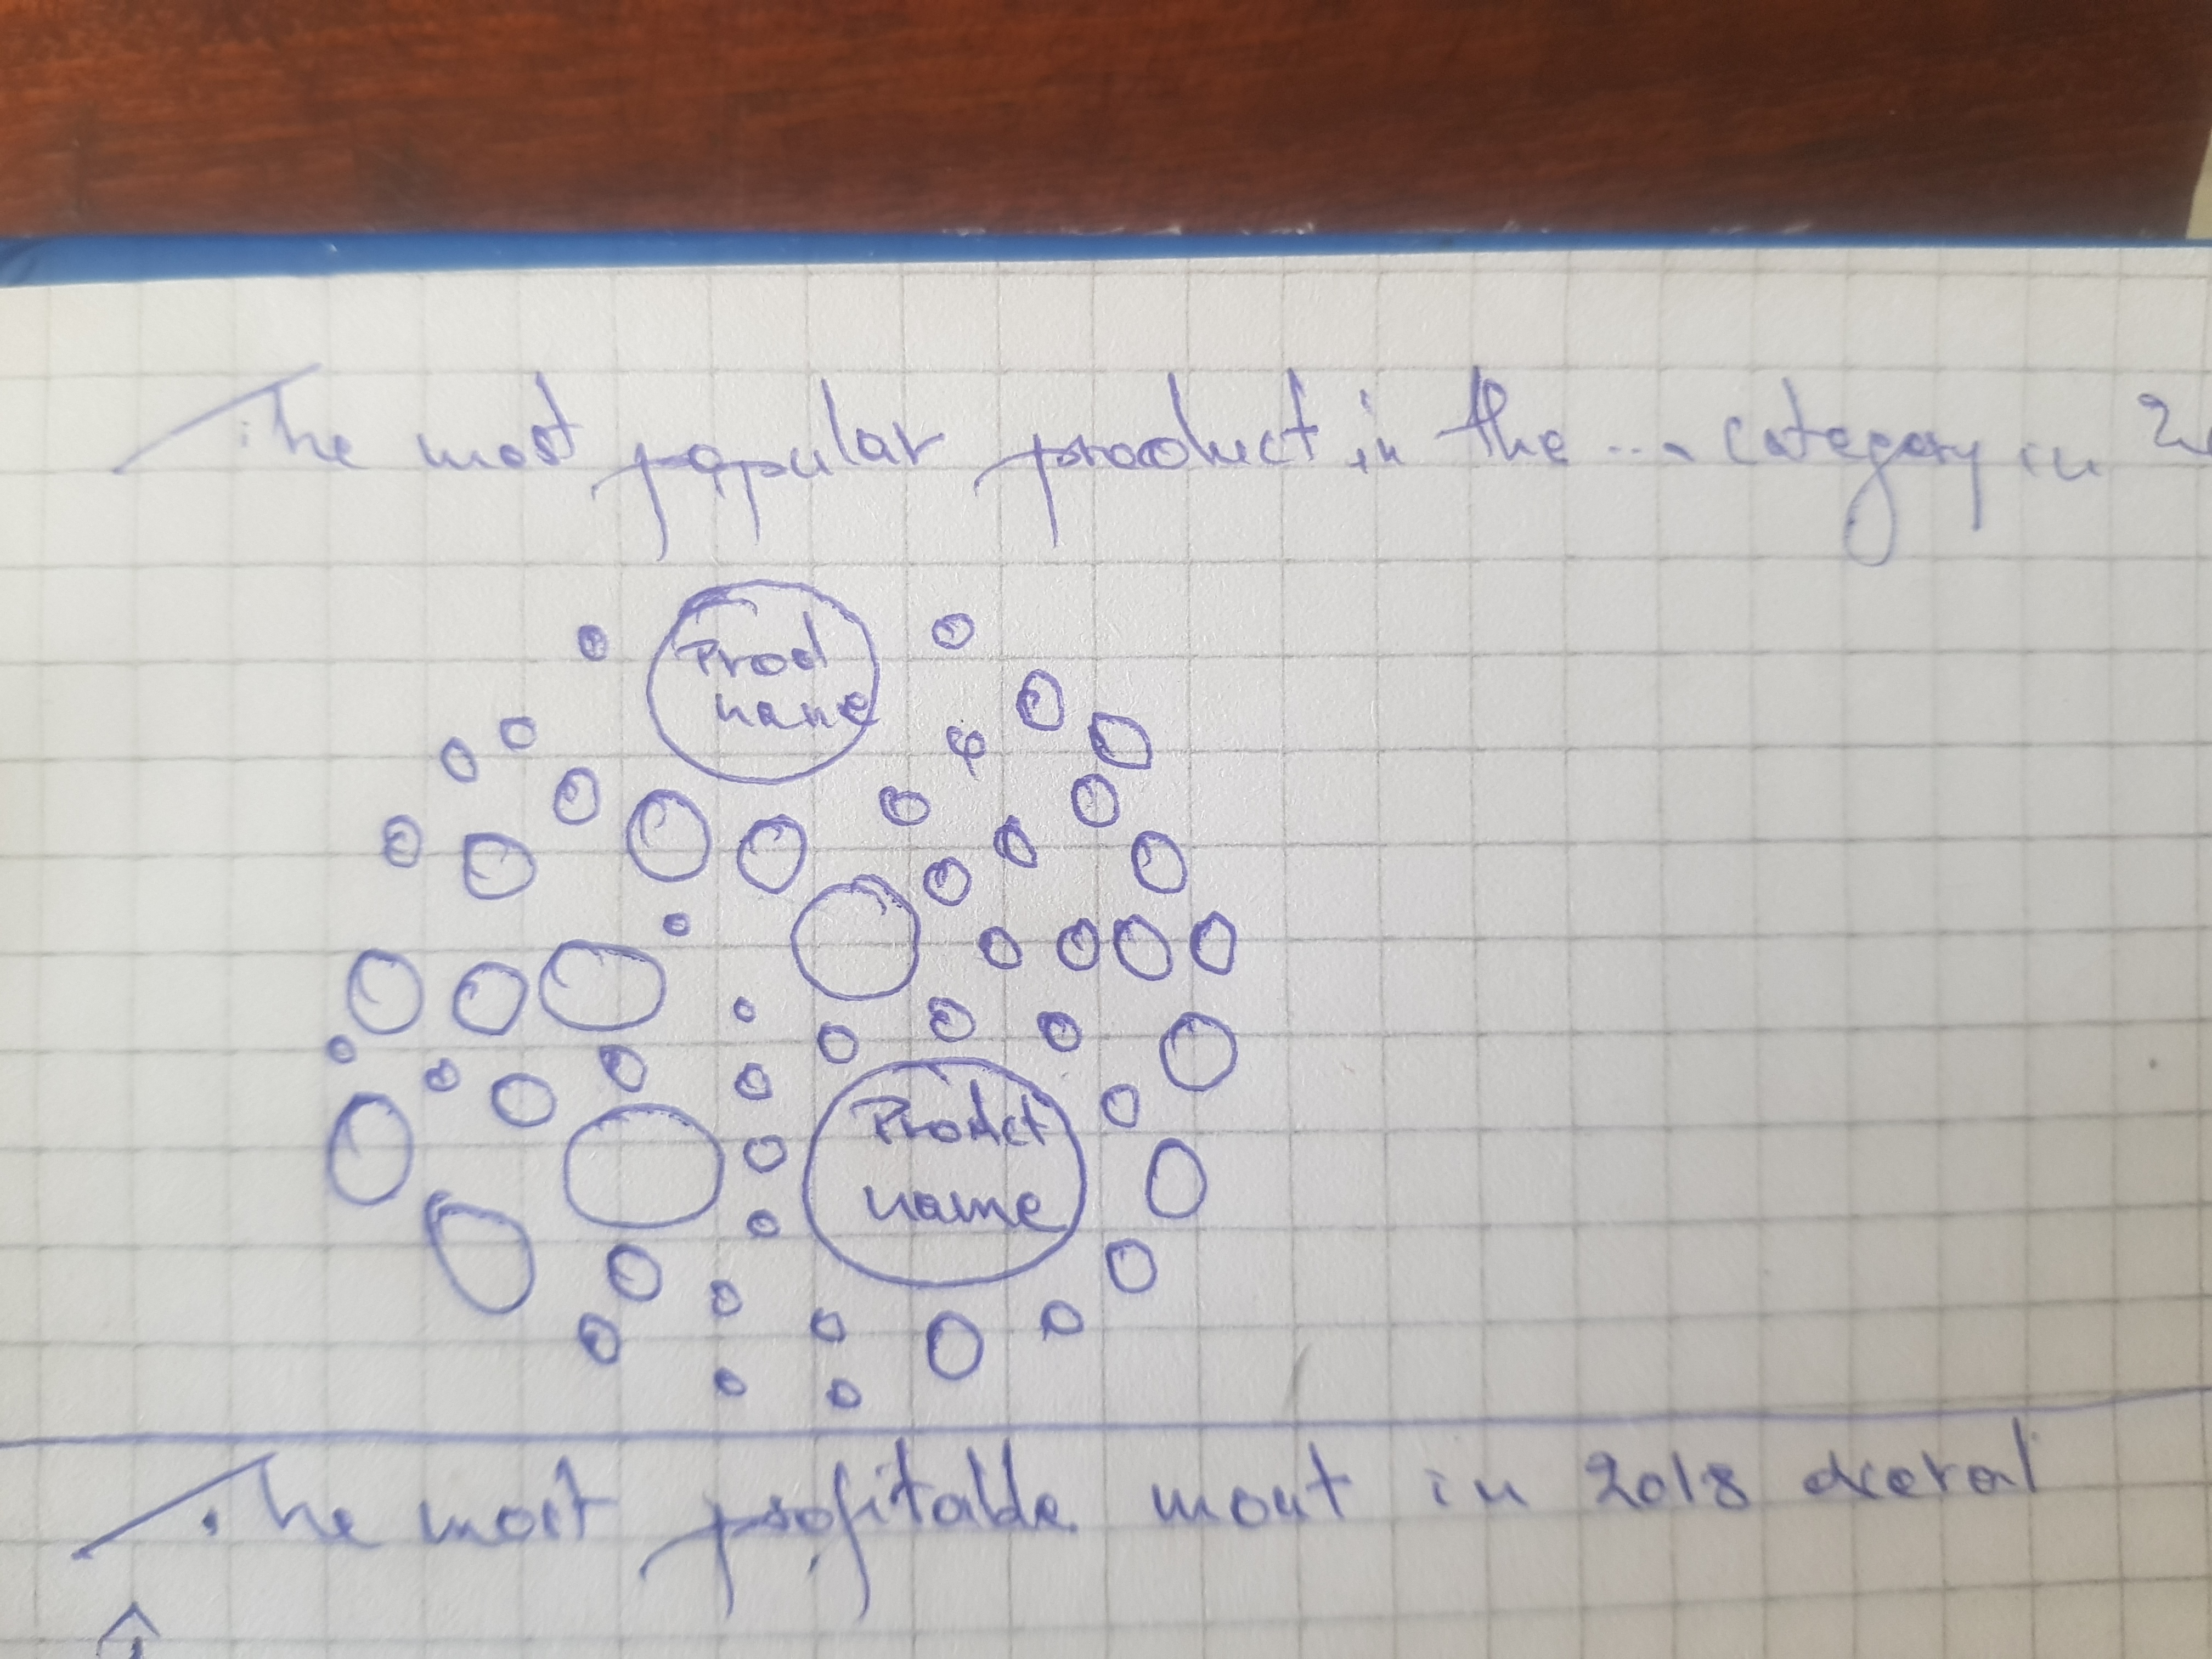 The most popular product in the ... category in 2
Prod
name
Prodct
name
The most profitable mont in 2018